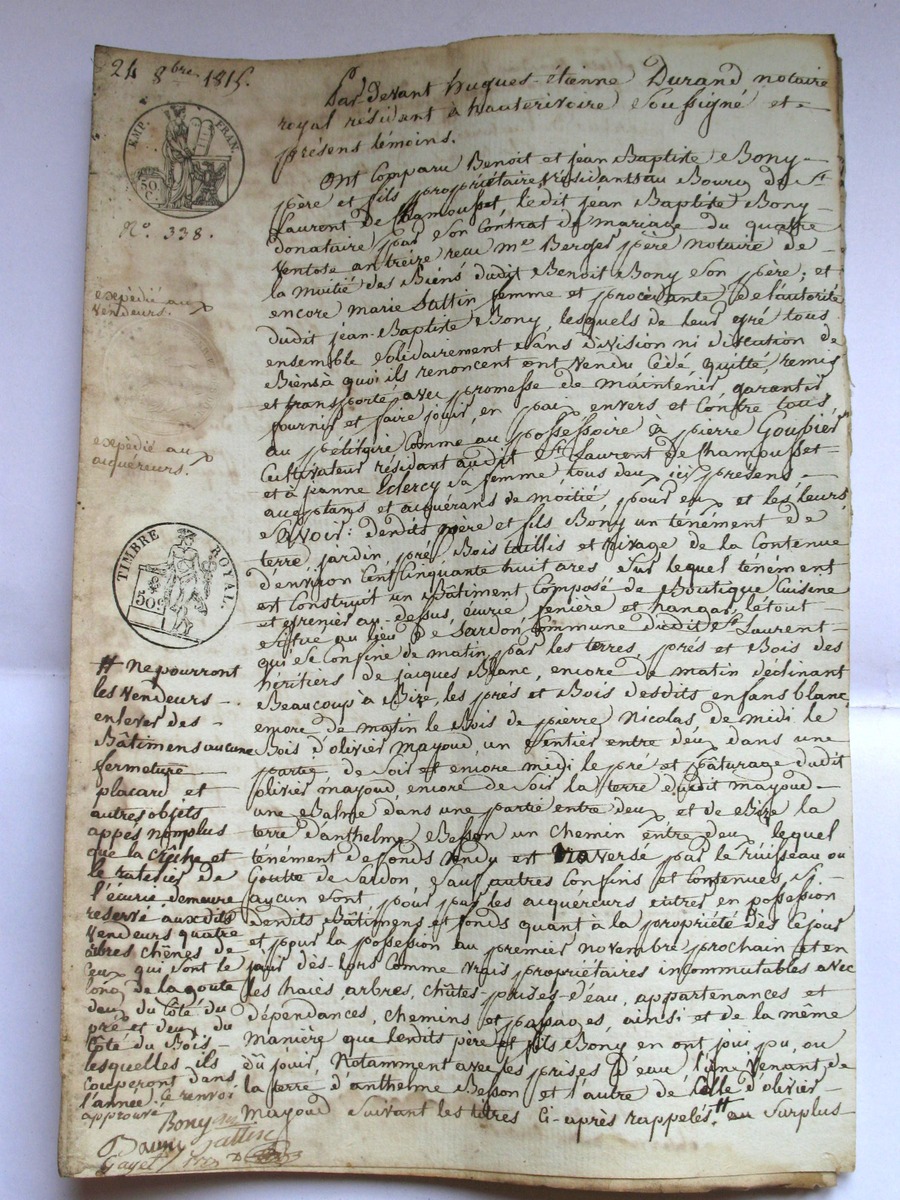 24 8bre 1815.
EMP. FRAN.
50 C.
N.o 338.
expédié aux
vendeurs.
expédié aux
acquéreurs.
TIMBRE ROYAL.
50c
Par devant hugues-étienne Durand notaire
royal résidant à hauterivoire soussigné et
présens témoins.
Ont comparu Benoit et jean Baptiste Bony
père et fils propriétaires résidants au Bourg de St
Laurent de Chamousset ledit jean Baptiste Bony
donataire par son Contrat de mariage du quatre
Ventose an treize recu me Berger père notaire de
la moitié des Biens dudit Benoit Bony son père; et
encore marie femme et procédante de l'autorité
dudit jean-Baptiste Bony, lesquels de leur gré tous
ensemble solidairement sans division ni discution de
Biens à quoi ils renoncent ont vendu cédé quitté, remis
et transporté avec promesse de maintenir garantir
fournir et faire jouir en paix envers et Contre tous
au pétitoire comme au possessoire à pierre Goupier
Cultivateur résidant audit St Laurent de Chamousset
et à jeanne sa femme tous deux ici présens
acceptans et acquérans de moitié pour eux et les leurs
Savoir: desdits père et fils Bony un ténément de
terre, jardin, pré, Bois taillis et rivage de la Contenue
d'environ Cent cinquante huit ares, sur lequel ténement
est Construit un Bâtiment Composé de Boutique, Cuisine
et grenier au-dessus, écurie, fenière et hangar, le tout
situé au lieu de Sardon, Commune dudit St Laurent
qui se Confine de matin par les terres, prés et Bois des
héritiers de jacques Blanc, encore de matin déclinant
Beaucoup à Bize, les prés et Bois desdits enfans blanc,
encore de matin le Bois de pierre Nicolas, de midi le
Bois d'olivier mayoud, un Sentier entre deux dans une
partie, de Soir et encore midi le pré et pâturage dudit
olivier mayoud, encore de Soir la terre dudit mayoud
une Balme dans une partie entre deux, et de Bize la
terre d'anthelme Besson un Chemin entre deux lequel
ténément de fonds vendu est traversé par le ruisseau ou
Goutte de Sardon, Sauf autres Confins et Contenues si
aucun sont, pour par les acquereurs entrer en possession
desdits Bâtimens et fonds quant à la propriété dès Ce jour
et pour la possession au premier novembre prochain et en
jouir dès-lors Comme vrais propriétaires incommutables avec
les haies, arbres, chûtes, prises-d'eau, appartenances et
dépendances, chemins et passages, ainsi et de la même
Manière que lesdits père et fils Bony en ont joui pu, ou
dû jouir, Notamment avec les prises d'eau l'une venant de
la terre d'anthelme Besson et l'autre de Celle d'olivier
Mayoud Suivant les titres Ci-après rappelés # au Surplus
# ne pourront
les vendeurs
enlever des
Bâtimens aucune
fermeture
placard et
autres objets
nomplus
que la crèche et
le ratelier de
l'écurie, demeure
réservé auxdits
Vendeurs quatre
arbres chênes de
Ceux qui sont le
long de la goute
deux du Côté du
pré et deux du
Côté du Bois
lesquelles ils
Couperont dans
l'année. Ce renvoi
approuvé
Bony
Gayet